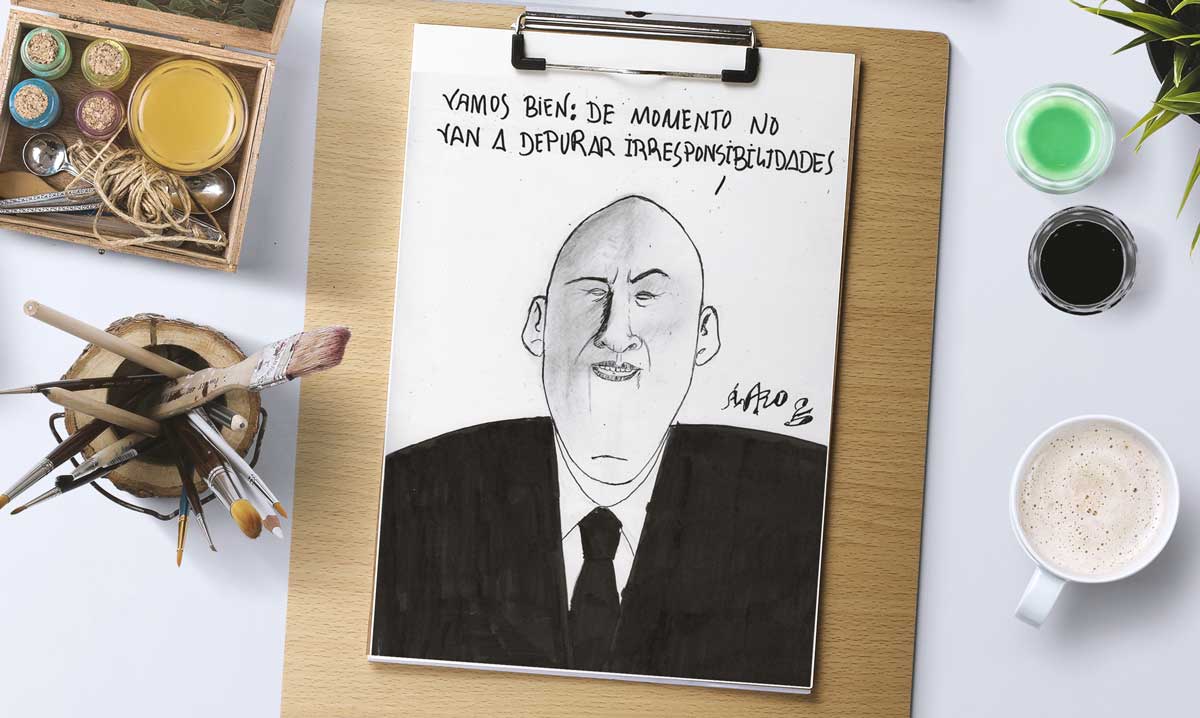 VAMOS BIEN: DE MOMENTO NO
VAN A DEPURAR IRRESPONSIBILIDADES